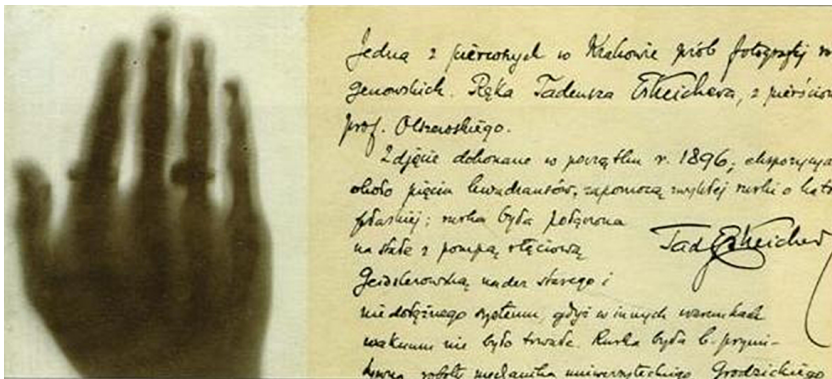 Jedna z pierwszych w Krakowie prób fotografij
genowskich. Ręka Tadeusza Estreichera, z pierścion
prof. Olszewskiego.
Zdjęcie dokonane w początku r. 1896; ekspozycja
około pięciu kwadransów, zapomocą zwykłej rurki o kat
płaskiej; rurka była połączona
na stałe z pompą rtęciową
Geisslerowską nader starego i
niedołężnego systemu, gdyż w innych warunkach
wakuum nie było trwałe. Rurka była b. prymi-
tywną robotą mechanika uniwersyteckiego Grodzickiego
Tad Estreicher